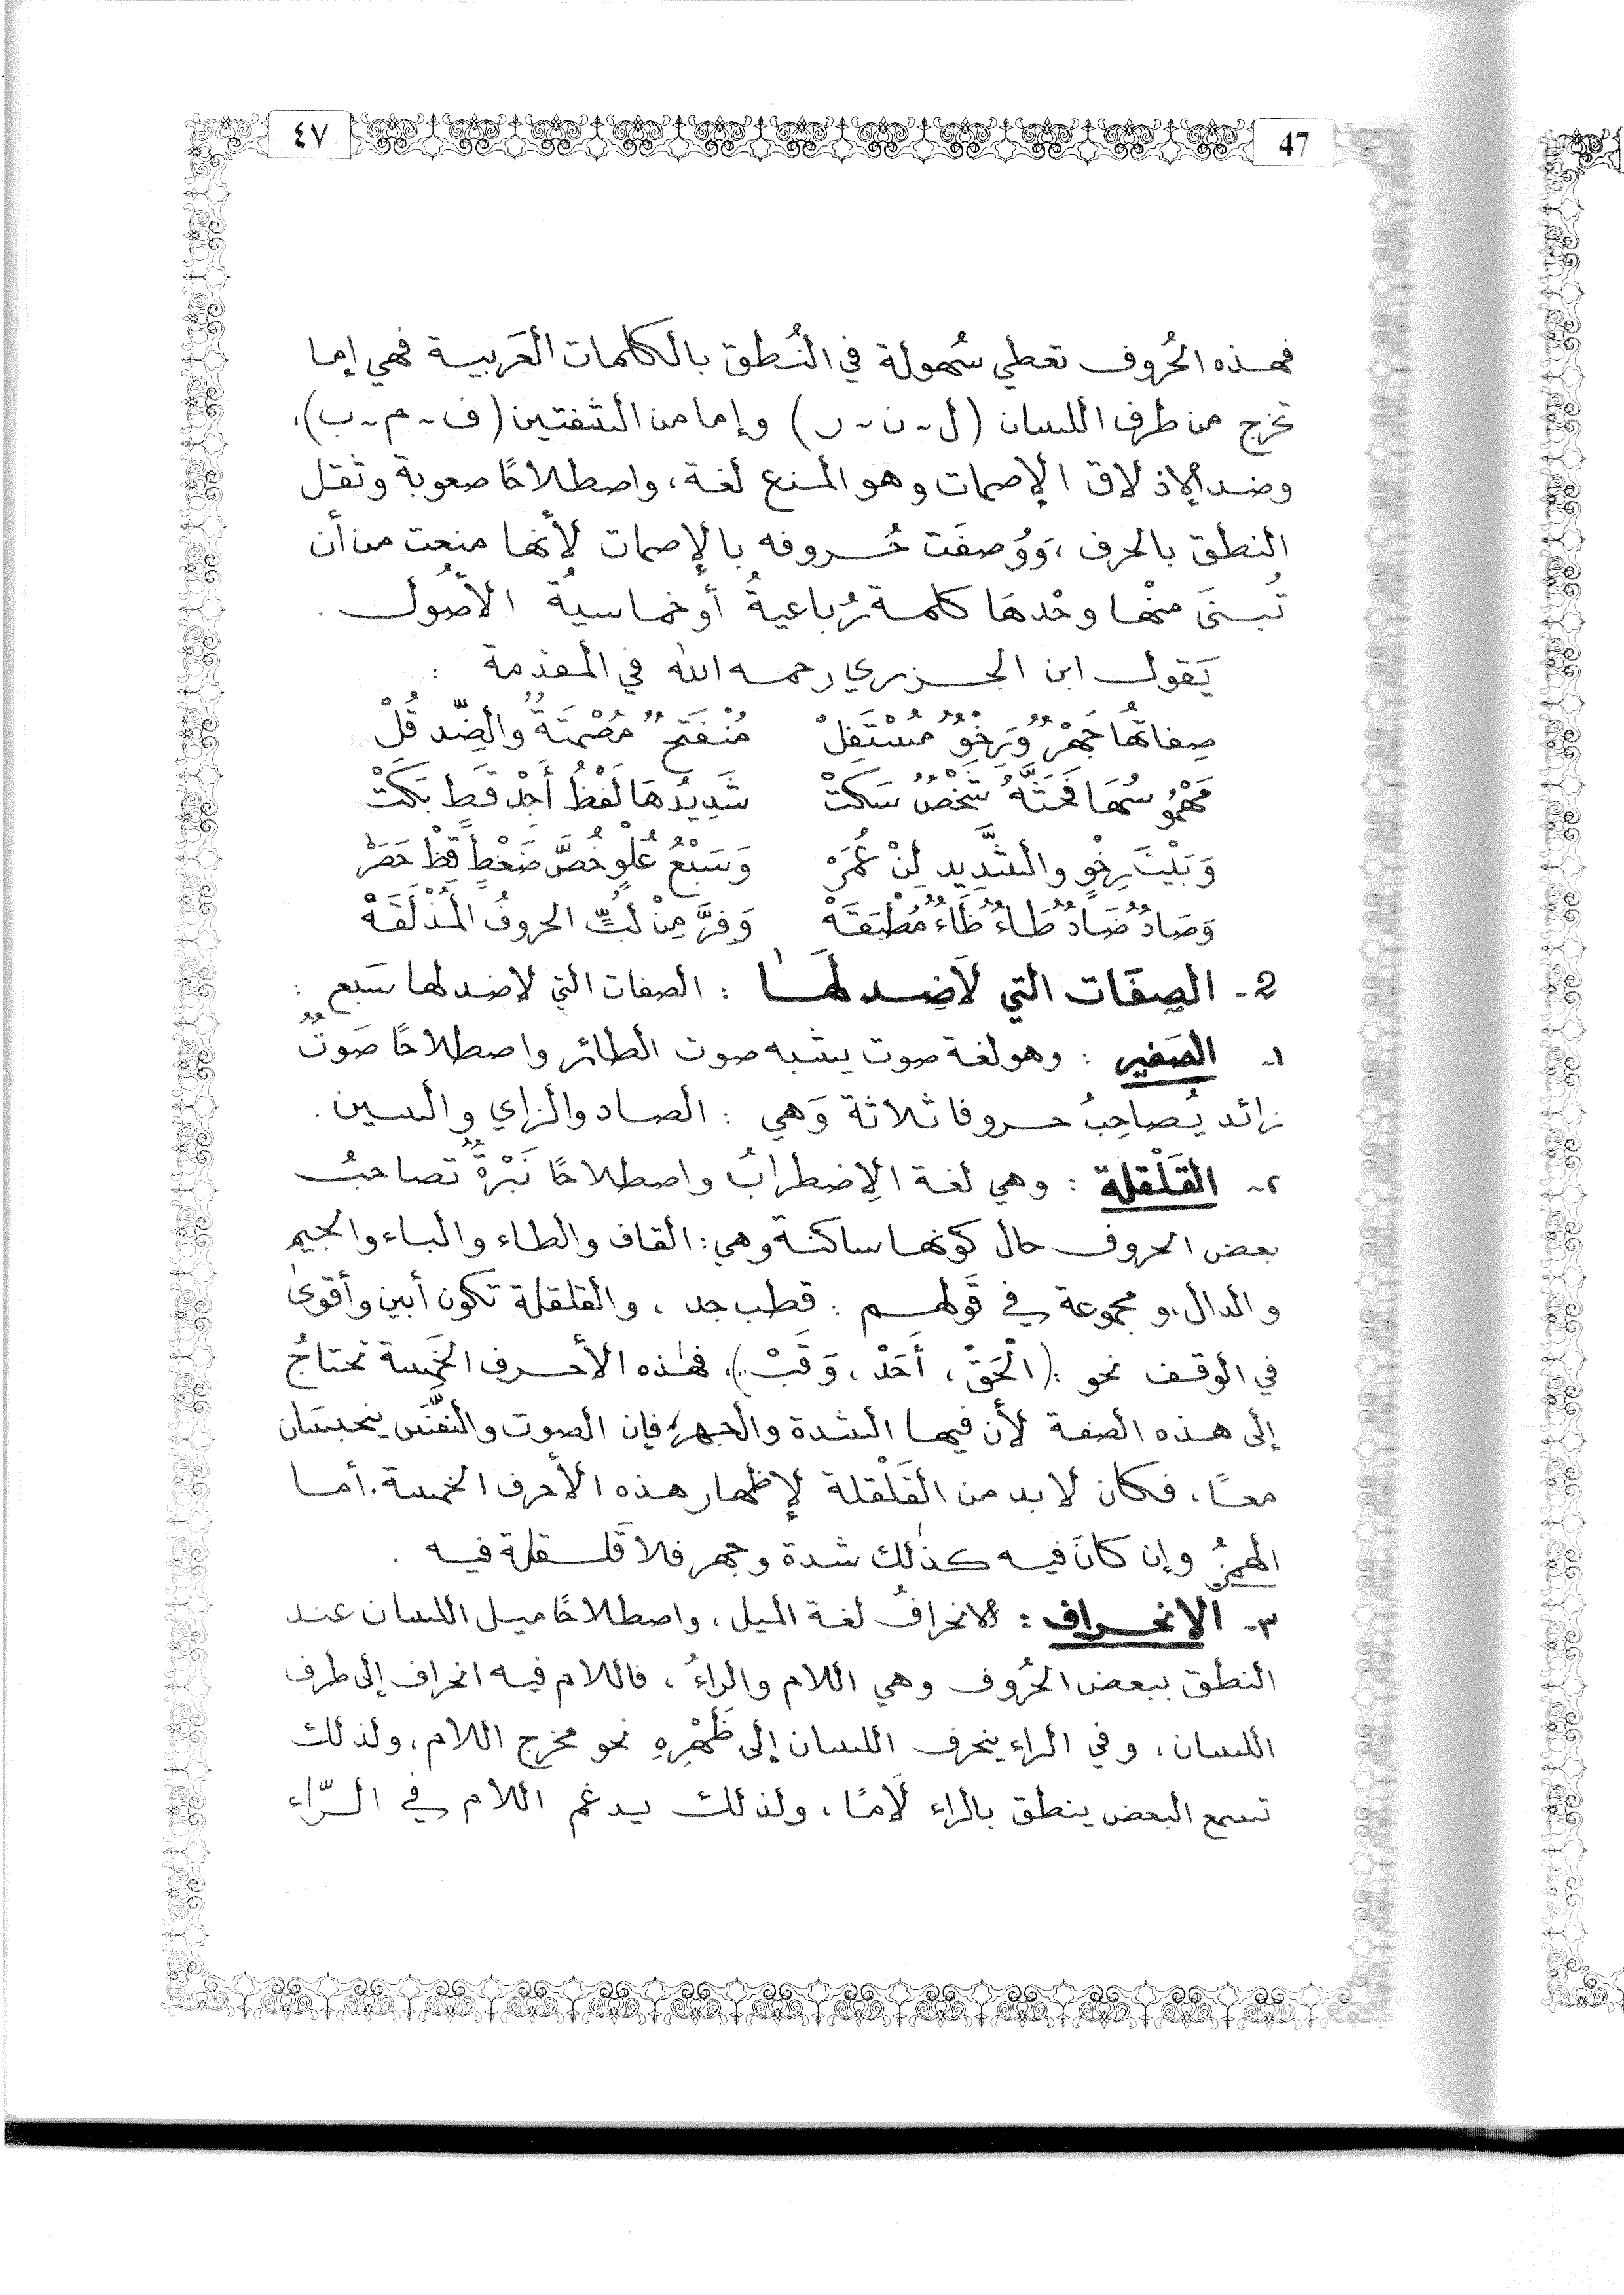 ٤٧
47
فهذه الحُروف تعطي سُهولة في النُطق بالكلمات العَربية فهي إما
تخرج من طرف اللسان (ل - ن - ر) وإما من الشفتين (ف - م - ب)،
وضد الإذلاق الإصمات وهو المنع لغة، واصطلاحًا صعوبة وثقل
النطق بالحرف، وَوُصفَت حُروفه بالإصمات لأنها منعت من أن
تُبنىَ منها وحْدهَا كلمة رُباعيةُ أو خماسيةُ الأصُول .
يَقول ابن الجزري رحمه الله في المقدمة :
صِفاتُها جَهْرٌ وَرِخْوٌ مُسْتَفِلْ مُنْفَتِحٌ مُصْمَتَةٌ والضِّد قُلْ
مَهْمُوسُهَا فَحَثَّهُ شَخْصٌ سَكتْ شَدِيدُهَا لَفْظُ أَجِدْ قَطٍ بَكَتْ
وَبَيْنَ رِخْوٍ والشَّدِيدِ لِنْ عُمَرْ وَسَبْعُ عُلْوٍ خُصَّ ضَغْطٍ قِظْ حَصَرْ
وَصَادٌ ضَادٌ طَاءٌ ظَاءٌ مُطْبَقَهْ وَفِرَّ مِنْ لُبِّ الحروفُ المُذْلَقَهْ
2- الصِفَات التي لاَضِد لهَا : الصفات التي لاضد لها سَبع :
١- الصَفير : وهو لغة صوت يشبه صوت الطائر واصطلاحًا صَوتٌ
زائد يُصاحِبُ حروفا ثلاثة وَهي : الصاد والزاي والسين .
٢- القَلْقلة : وهي لغة الاِضطرابُ واصطلاحًا نَبْرةٌ تصاحبُ
بعض الحروف حال كونها ساكنة وهي : القاف والطاء والباء والجيم
والدال، ومجموعة في قَولهم : قطب جد ، والقلقلة تكون أبين وأقوى
في الوقف نحو : (الْحَقْ ، أَحَدْ ، وَقَبْ ..)، فهٰذه الأحرف الخَمسة تحتاجُ
إلى هذه الصفة لأن فيها الشدة والجهر، فإن الصوت والنفَسَ ينحبسَان
معًا ، فكان لابد من القَلْقلة لإظهار هذه الأحرف الخمسة . أما
الهمزُ وإن كانَ فيه كذٰلك شدة وجهر فلا قَلقلة فيه .
٣- الانحراف : الانحرافُ لغة الميل ، واصطلاحًا ميل اللسان عند
النطق ببعض الحُروف وهي اللام والراءُ ، فاللام فيه انحراف إلى طرف
اللسان ، وفي الراء ينحرف اللسان إلى ظَهْرِهِ نحو مخرج اللام ، ولذلك
تسمع البعض ينطق بالراء لاَمًا ، ولذلك يدغم اللام في الرّاء